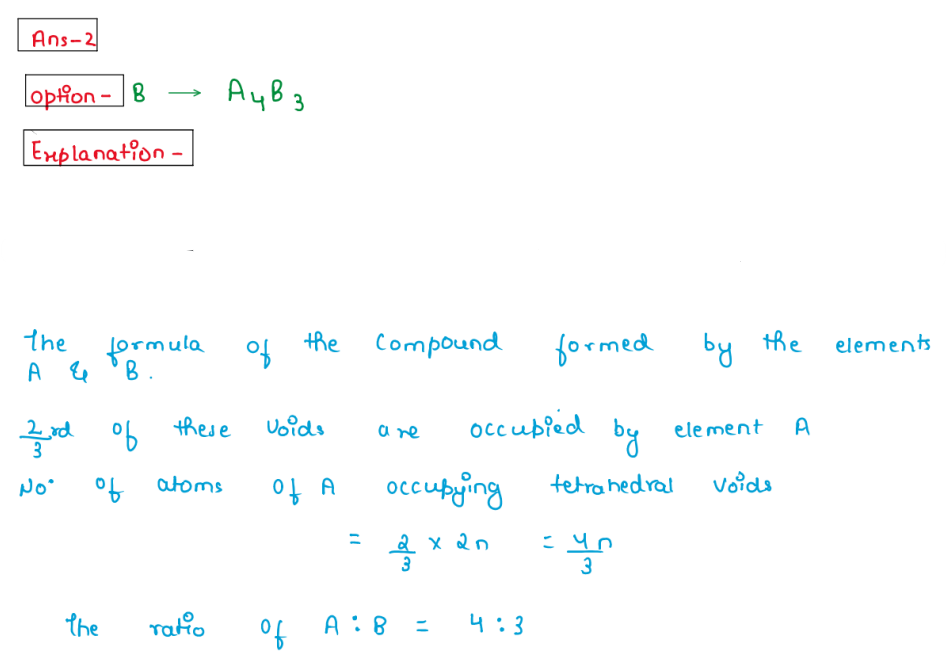 Ans-2
option- B → A₄B₃
Explanation -
The formula of the compound formed by the elements
A & B.
2/3 rd of these voids are occupied by element A
No. of atoms of A occupying tetrahedral voids
= 2/3 × 2n = 4n/3
The ratio of A : B = 4 : 3